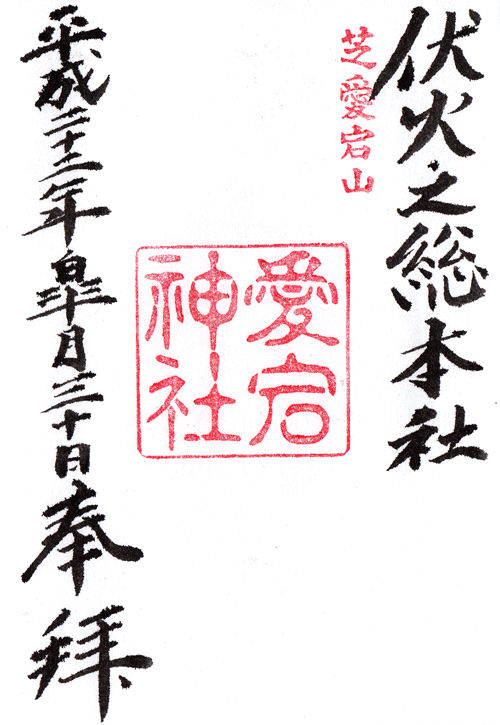 伏火之総本社
芝愛宕山
愛宕
神社
平成二十二年皐月三十日奉拝